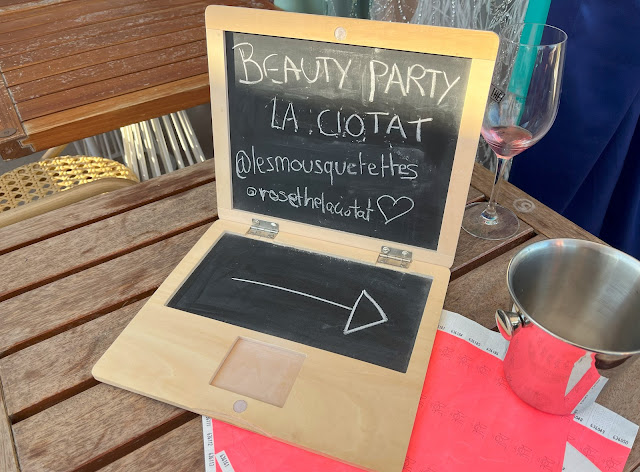 BEAUTY PARTY
LA CIOTAT
@lesmousquetettes
@rosethelaciotat